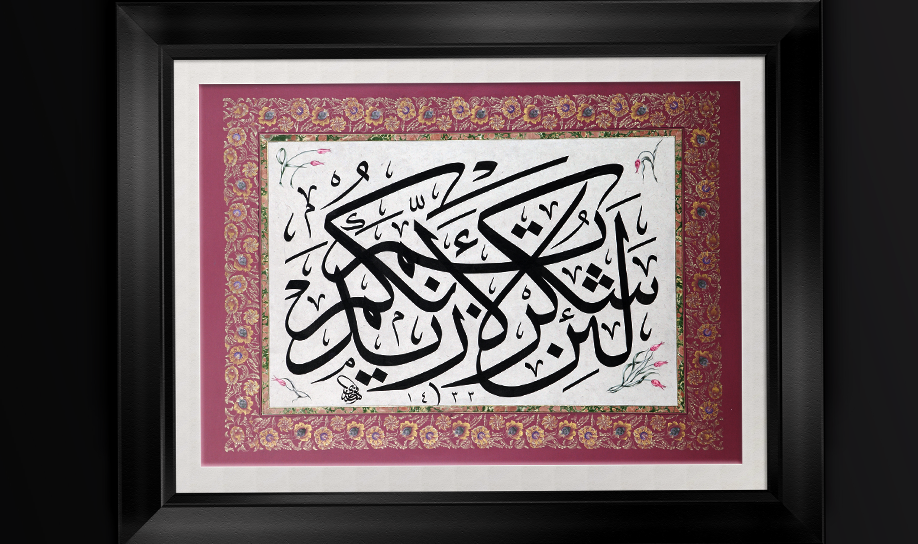 لئن شكرتم لأزيدنكم
١٤٣٣